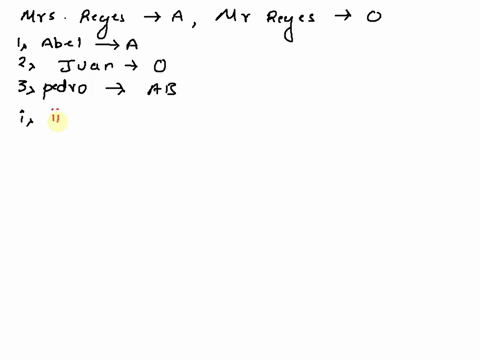 Mrs. Reyes → A, Mr Reyes → O
1, Abel → A
2, Juan → O
3, pedro → AB
i, ii